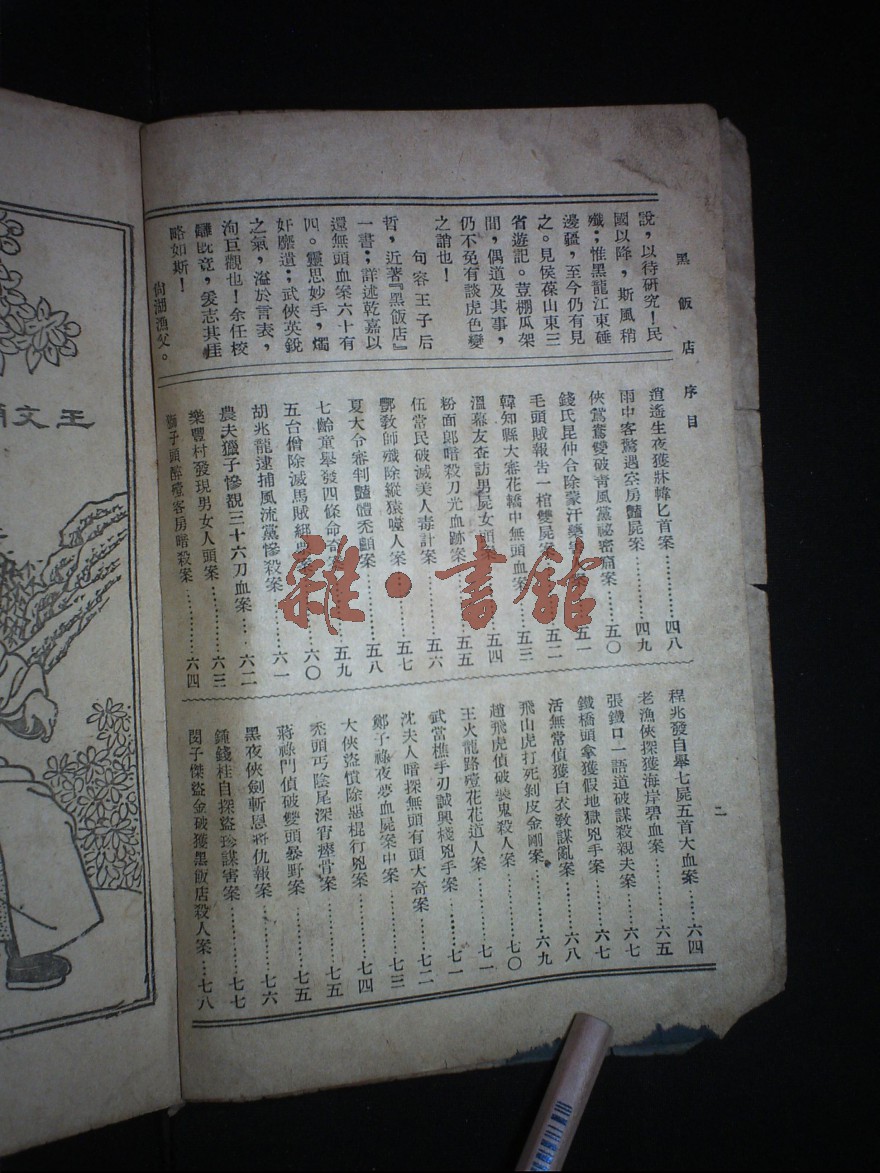 黑飯店序目
說，以待研究！民
國以降，斯風稍
殲；惟黑龍江東陲
邊疆，至今仍有見
之。見侯葆山東三
省遊記。荳棚瓜架
間，偶道及其事，
仍不免有談虎色變
之誚也！
句容王子后
哲，近著『黑飯店』
一書；詳述乾嘉以
還無頭血案六十有
四。靈思妙手，燭
奸靡遺；武俠英銳
之氣，溢於言表，
洵巨觀也！余任校
讎既竟，爰志其崖
略如斯！
尙湖漁父。
逍遙生夜獲牀幃匕首案………四八
雨中客驚遇空房豔屍案………四九
俠鴛鴦雙破靑風黨祕密窩案………五〇
錢氏昆仲合除蒙汗藥案………五一
毛頭賊報吿一棺雙屍案………五二
韓知縣大審花轎中無頭血案………五三
溫幕友查訪男屍女頭案………五四
粉面郞暗殺刀光血跡案………五五
伍常民破滅美人毒計案………五六
鄷敎師殲除縱猿噬人案………五七
夏大令審判豔體禿顱案………五八
七齡童舉發四條命奇案………五九
五台僧除滅馬賊綁票案………六〇
胡兆龍逮捕風流黨慘殺案………六一
農夫獵子慘覩三十六刀血案…六二
樂豐村發現男女人頭案………六三
獅子頭醉殪客房暗殺案………六四
程兆發自舉七屍五首大血案………六四
老漁俠探獲海岸碧血案………六五
張鐵口一語道破謀殺親夫案………六七
鐵橋頭拿獲假地獄兇手案………六七
活無常偵獲白衣敎謀亂案………六八
飛山虎打死剝皮金剛案………六九
趙飛虎偵破裝鬼殺人案………七〇
王火龍路殪花花道人案………七一
武當樵手刃誠興棧兇手案………七一
沈夫人暗探無頭有頭大奇案………七二
鄭子祿夜夢血屍案中案………七三
大俠盜憤除惡棍行兇案………七四
禿頭丐陰尾深宵瘞骨案………七五
蔣祿門偵破雙頭暴野案………七五
黑夜俠劍斬恩將仇報案………七六
鍾錢桂自探盜珍謀害案………七七
閔子傑盜金破獲黑飯店殺人案………七八
二
王文
雜·書館